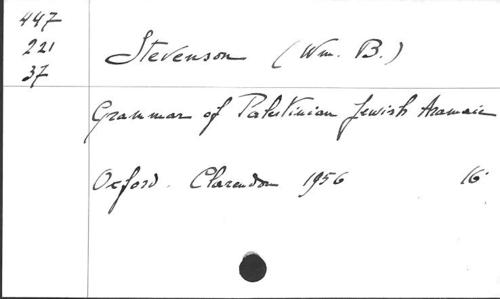 447
221
37
Stevenson (Wm. B.)
Grammar of Palestinian Jewish Aramaic
Oxford. Clarendon 1956 16